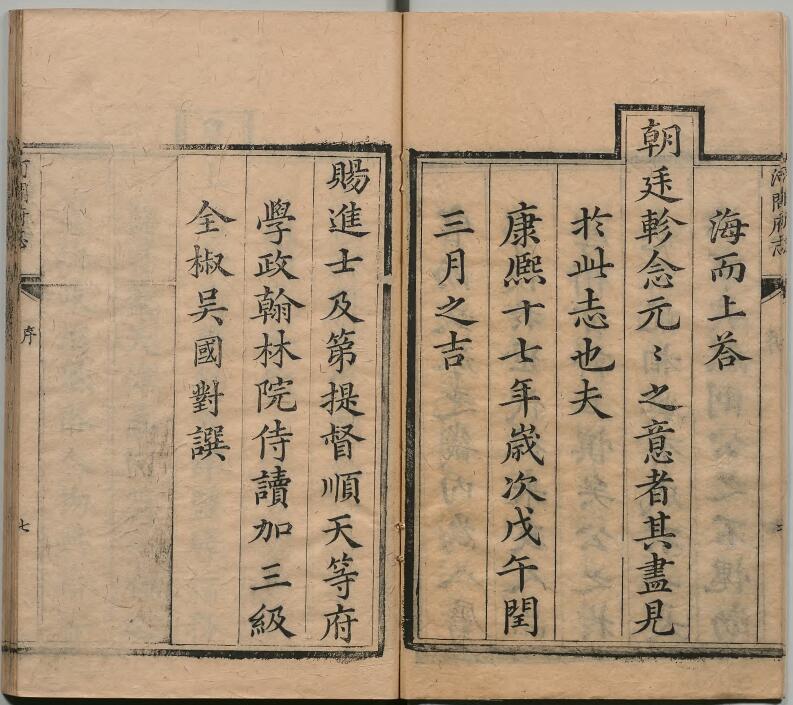 河間府志
海而上荅
朝廷軫念元〻之意者其盡見
扵此志也夫
康熈十七年歲次戊午閏
三月之吉
賜進士及第提督順天等府
學政翰林院侍讀加三級
全椒吳國對譔
河間府志
序
七